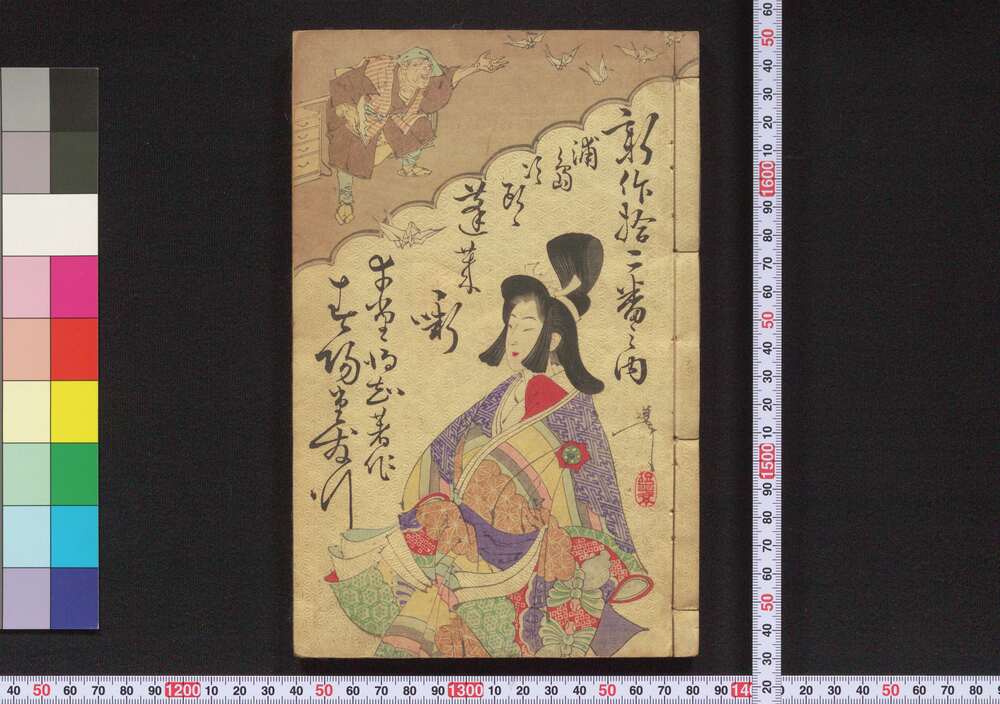 新作拾二番之内
浦島
次郎
蓬莱噺
幸堂得知著作
春陽堂発行
60 50 40 30 20 10 1600 90 80 70 60 50 40 30 20 10 1500 90 80 70 60 50 40 30 20
40 50 60 70 80 90 1200 10 20 30 40 50 60 70 80 90 1300 10 20 30 40 50 60 70 80 90 20 30 40 50 60 70 80